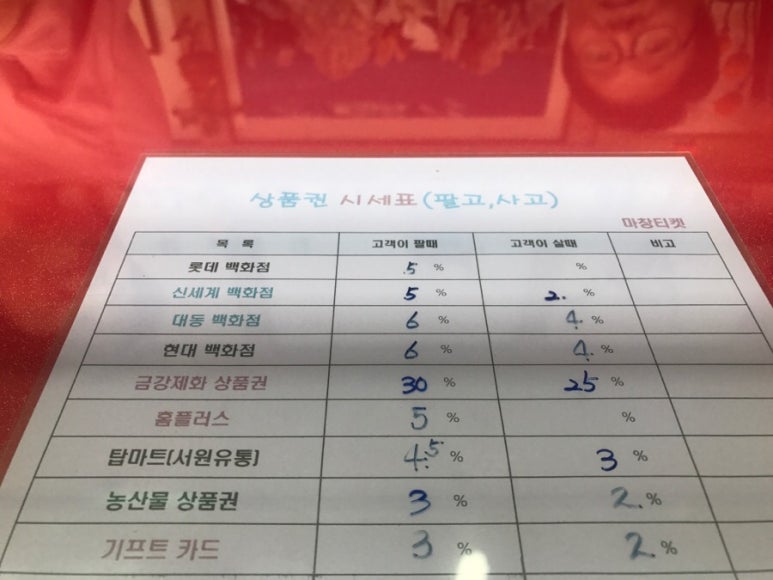 상품권 시세표(팔고,사고)
마창티켓
목 록 고객이 팔때 고객이 살때 비고
롯데 백화점 5 % %
신세계 백화점 5 % 2. %
대동 백화점 6 % 4. %
현대 백화점 6 % 4. %
금강제화 상품권 30 % 25 %
홈플러스 5 % %
탑마트(서원유통) 4.5 % 3 %
농산물 상품권 3 % 2. %
기프트 카드 3 % 2. %